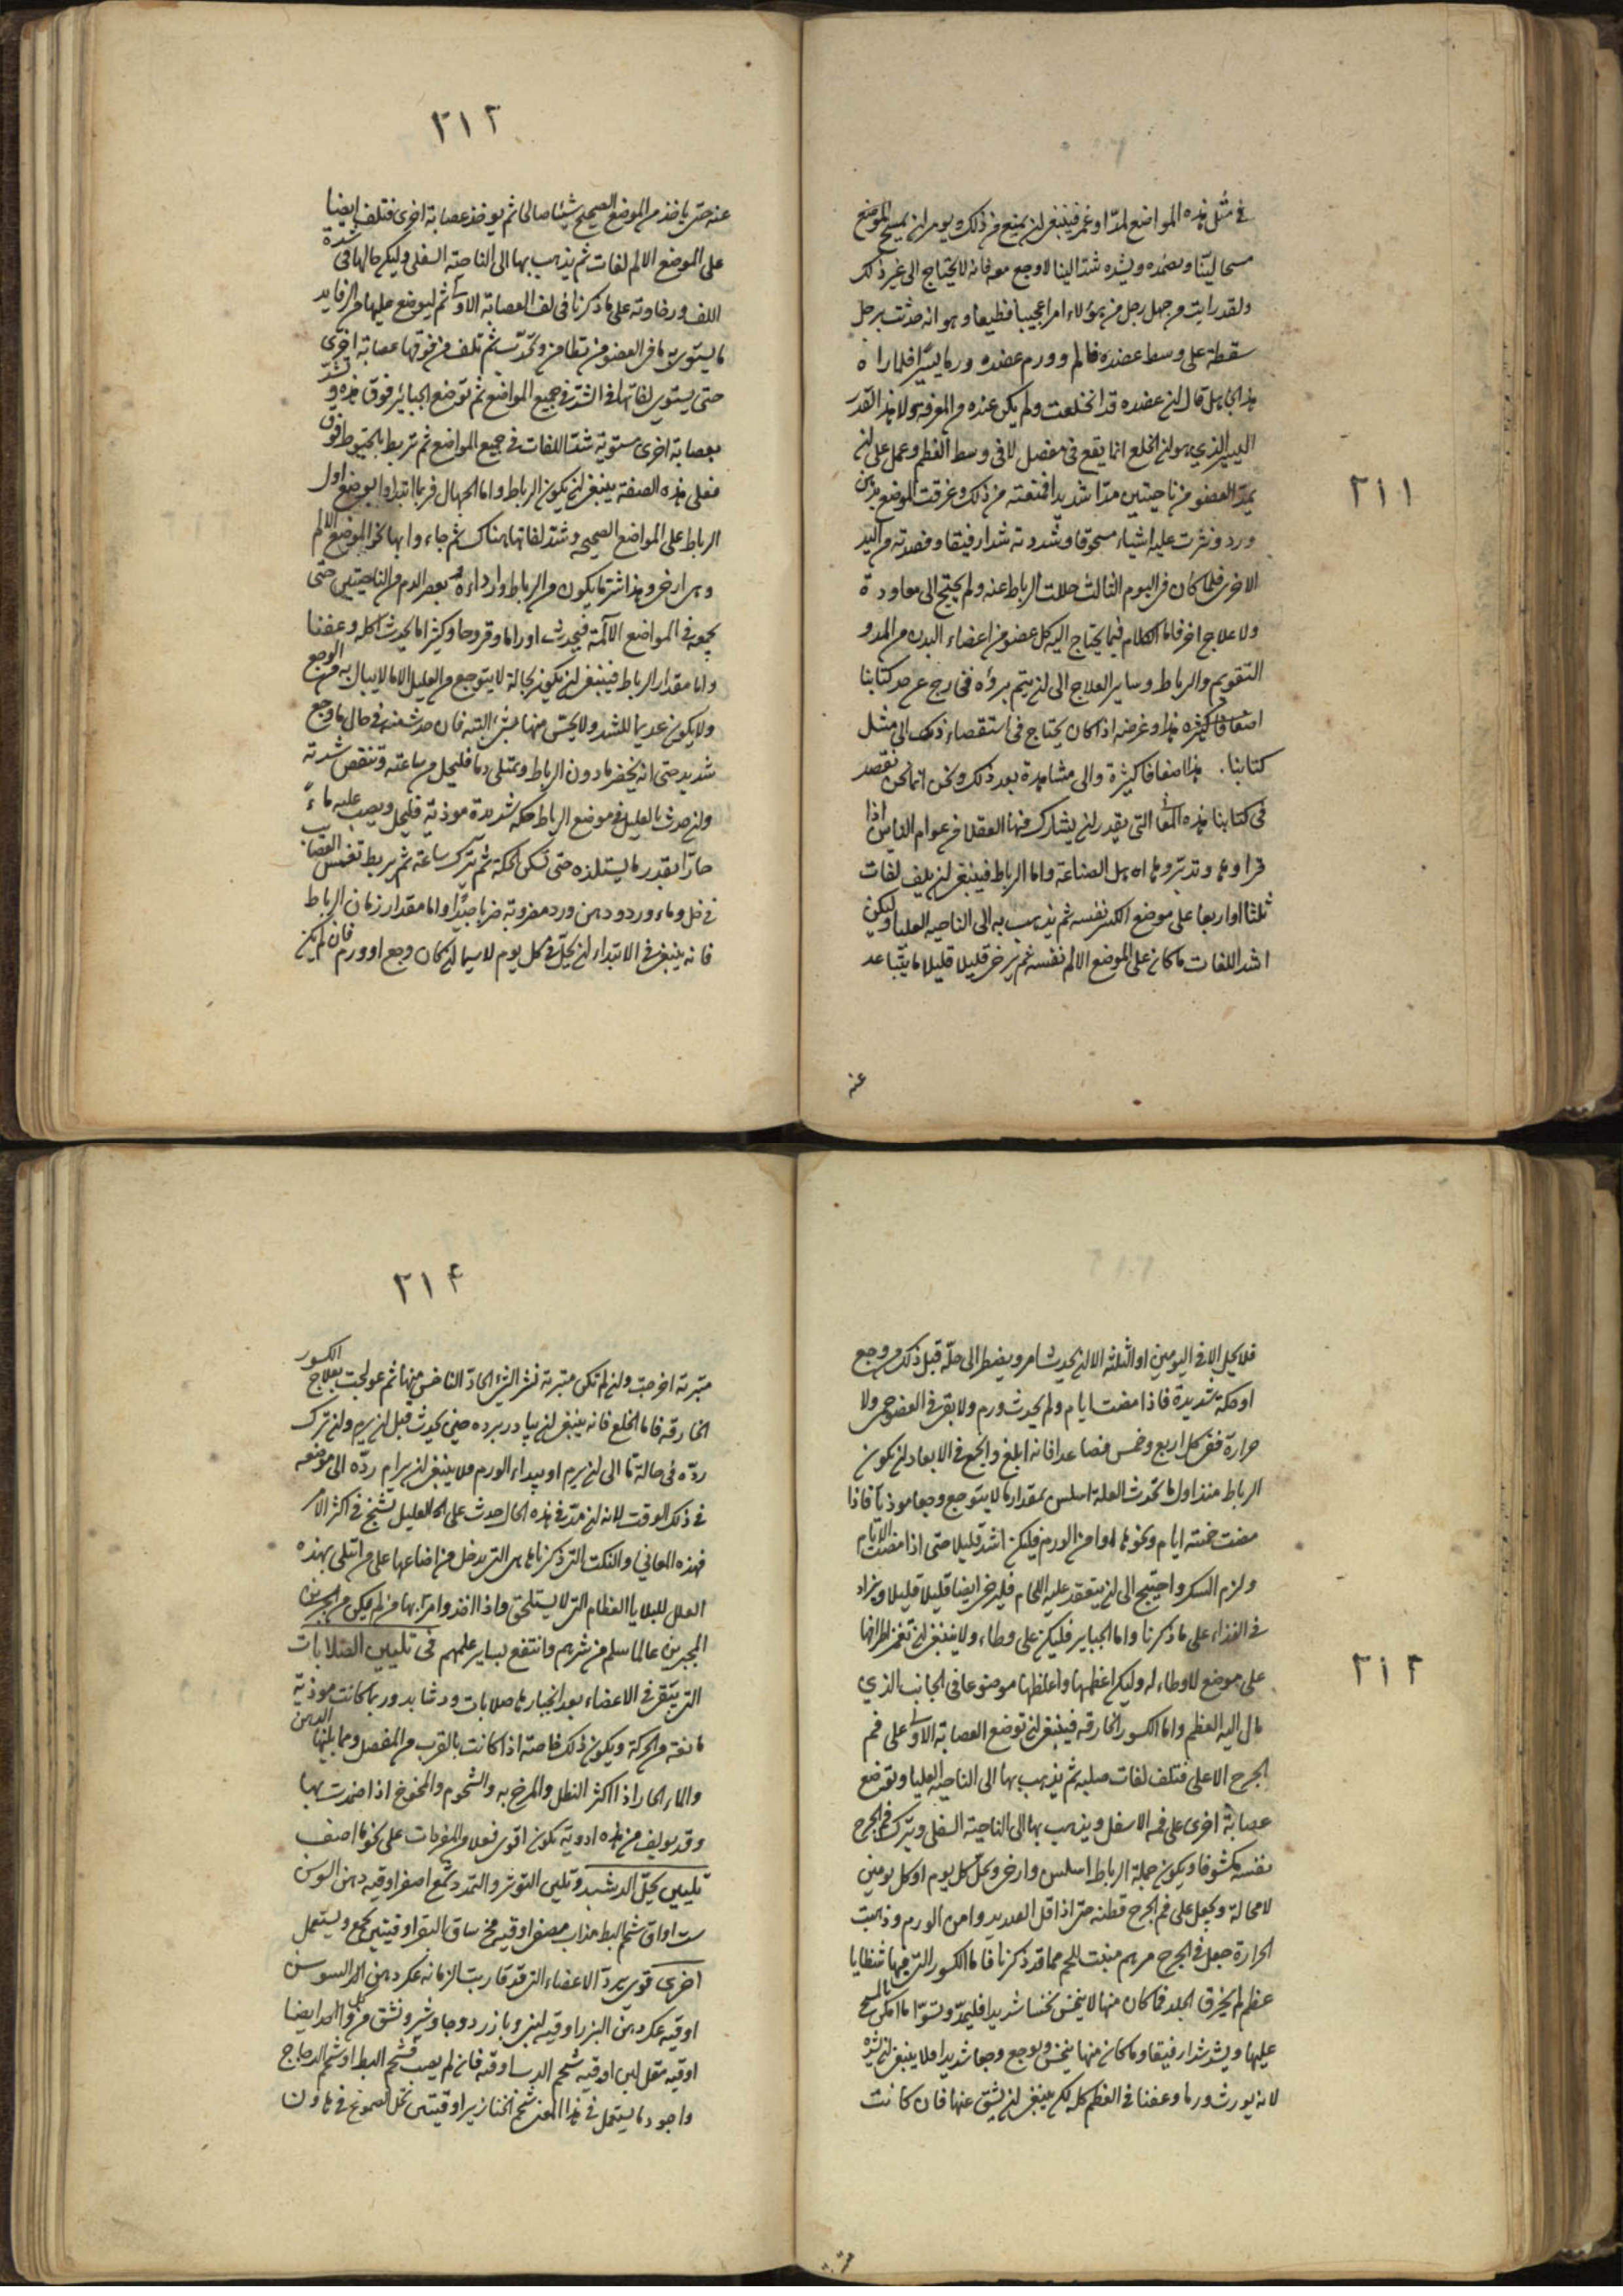 ٢١١
في مثل هذه المواضع لمدّ او غمز فينبغي ان يمنع من ذلك ويومر ان يمسح الموضع
مسحا ليّنا ويضمّده ويشده شدا لينا لا وجع معه فانه لا يحتاج الى غير ذلك
ولقد رايت من جهل رجل من هؤلاء امرا عجيبا فظيعا وهو انه حدثت برجل
سقطة على وسط عضده فالم وورم عضده ورما يسيرا فلما راه
هذا الجاهل قال ان عضده قد انخلعت ولم يكن عنده من المعرفة ولا هذا القدر
اليسير الذي هو ان الخلع انما يقع في مفصل لا في وسط العظم وعمل على ان
يمدّ العضو من ناحيتين مدّا شديدا فمنعته من ذلك وغرقت الموضع بدهن
ورد ونثرت عليه اشياء مسحوقا وشددته شدا رفيقا وفصدته من اليد
الاخرى فلما كان في اليوم الثالث حللت الرباط عنه ولم يحتج الى معاودة
ولا علاج اخر فاما الكلام فيما يحتاج اليه كل عضو من اعضاء البدن من المد و
التقويم والرباط وساير العلاج الى ان يتم برؤه فخارج عن حد كتابنا
اضعافا كثيرة هذا وغرضه اذا كان يحتاج في استقصاء ذلك الى مثل
كتابنا هذا اضعافا كثيرة والى مشاهدة بعد ذلك ونحن انما نحن نقصد
في كتابنا هذه المعاني التي يقدر ان يشارك فيها العقلا من عوام الناس اذا
قراوها وتدبروها اهل الصناعة واما الرباط فينبغي ان يلف لفات
ثلثا او اربعا على موضع الكسر نفسه ثم يذهب به الى الناحيه العليا وليكن
اشد اللفات ما كان على الموضع الالم نفسه ثم يرخى قليلا قليلا ما يتباعد
عنه
٢١٢
عنه حتى ياخذ من الموضع الصحيح شيئا صالحا ثم يوخذ عصابة اخرى فتلف ايضا
على الموضع الالم لفات ثم يذهب بها الى الناحية السفلى وليكن حالها في شدة
اللف ورخاوته على ما ذكرنا في لف العصابة الاولى ثم ليوضع عليها من الرفايد
ما يستوى به ما في العضو من تطامن وتحدّب ثم تلف من فوقها عصابة اخرى
حتى يستوى لفاتها في الشد في جميع المواضع ثم توضع الجبائر فوق هذه وتشدّ
بعصابة اخرى مستوية شد اللفات في جميع المواضع ثم تربط بالخيوط فوق
فعلى هذه الصفة ينبغي ان يكون الرباط واما الجهال فربما ابتداوا بوضع اول
الرباط على المواضع الصحيحه وشد لفاتها هناك ثم جاءوا بها نحو الموضع الالم
وهى ارخى وهذا شر ما يكون من الرباط وارداءه يعصر الدم من الناحيتين حتى
يجمعه في المواضع الالمة فيحدث اوراما وقروحا وكثيرا ما يحدث اكله وعفنا
واما مقدار الرباط فينبغي ان يكون بحالة لا يتوجع من العليل الا ما لا يبال به من الوجع
ولا يكون عديما للشد ولا يحس منها بشئ البته فان حدث عنه في حال ما وجع
شديد حتى انه يخضر ما دون الرباط ويمتلى دما فليحل من ساعته وتنقص شدته
وان حدث بالعليل في موضع الرباط حكه شديدة موذية فليحل ويصب عليه ماءً
حارّا بقدر ما يستلذه حتى تسكن الحكة ثم يترك ساعة ثم يربط تغمس العصايب
في خل وماء ورد ودهن ورد مضروبة ضربا جيّدا واما مقدار زمان الرباط
فانه ينبغي في الابتداء ان يحلّ في كل يوم لا سيما ان كان وجع او ورم فان لم يكن
٢١٣
فلا يحل الا في اليومين او الثلثة الا ان يحدث امر ويضطر الى حلّه قبل ذلك من وجع
او حكة شديدة فاذا مضت ايام ولم يحدث ورم ولا بقى في العضو حمى ولا
حرارة ففى كل اربع وخمس فصاعدا فانه ابلغ وانجع في الابعاد ان يكون
الرباط منذ اول ما تحدث العلة اسلس بمقدار ما لا يتوجع وجعا موذيا فاذا
مضت خمسة ايام ونحوها وامن الورم فليكن اشد قليلا حتى اذا مضت الايام
ولزم الكسر واحتيج الى ان يتعقد عليه اللحام فليرخى ايضا قليلا قليلا ويزاد
في الغذاء على ما ذكرنا واما الجبائر فليكن على وطاء ولا ينبغي ان تغمز اطرافها
على موضع لا وطاء له وليكن اعظمها واغلظها موضوعا في الجانب الذي
مال اليه العظم واما الكسور الخارقه فينبغي ان توضع العصابة الاولى على فم
الجرح الاعلى فتلف لفات صلبه ثم يذهب بها الى الناحيه العليا وتوضع
عصابة اخرى على فمه الاسفل ويذهب بها الى الناحية السفلى ويترك فم الجرح
نفسه مكشوفا ويكون جملة الرباط اسلس وارخى وتحل كل يوم او كل يومين
لا محالة ويجعل على فم الجرح قطنه حتى اذا قل الصديد وامن الورم وذهبت
الحرارة جعل في الجرح مرهم منبت للحم مما قد ذكرنا فاما الكسور التي فيها شظايا
عظم لم يخرق الجلد فما كان منها لا ينخس نخسا شديدا فليمدّ وتسوّا ما امكن بالمسح
عليها ويشد شدا رفيقا وما كان منها ينخس ويوجع وجعا شديدا فلا ينبغي ان يشده
لانه يورث ورما وعفنا في العظم كله لكن ينبغي ان يشق عنها فان كانت
متبرئة
٢١۴
متبرئة اخرجت وان لم تكن متبرئة نشر الشئ الحادّ الناخس منها ثم عولجت بعلاج الكسور
الخارقه فاما الخلع فانه ينبغي ان يبادر برده حين يحدث قبل ان يرم وان ترك
ردّه في حالة ما الى ان يرم او يبداء الورم فلا ينبغي ان يرام ردّه الى موضعه
في ذلك الوقت لانه ان مدّ في هذه الحال حدث على العليل تشنج في اكثر الامر
فهذه المعاني والنكت التي ذكرناها هى التي يدخل من اضاعها على من ابتلى بهذه
العلل البلايا العظام التي لا يستلحق واذا اخذوا مرّ بها من لم يكن من المجبرين
المجبرين عالما سلم من شرهم وانتفع بساير علمهم في تليين الصلابات
التي يبقى في الاعضاء بعد انجبارها صلابات ودشابد وربما كانت موذية
مانعة من الحركة ويكون ذلك خاصة اذا كانت بالقرب من المفصل ومما يلينها الدهن
والماء الحار اذا اكثر النطل والمرخ به والشحوم والمخوخ اذا ضمدت بها
وقد يولف من هذه ادوية يكون اقوى فعلا من المفردات على نحو ما اصف
تليين يحلّ الدشبد وتلين التوتر والتمدد شمع اصفر اوقيه دهن السوسن
ست اواق شحم البط مذاب مصفى اوقية مخ ساق البقر اوقيتين يجمع ويستعمل
اخرى قوى يردّ الاعضاء التي قد قاربت الزمانه عكر دهن السوسن
اوقيه عكر دهن البزر اوقيه لبنى وبازرد وجاوشير واشق من كل واحد ايضا
اوقيه مقل لين اوقيه شحم الدب اوقيه فان لم يصب فشحم البط او شحم الدجاج
واجود ما يستعمل في هذا المعنى شحم الخنازير اوقيتين تحل الصموغ في هاون